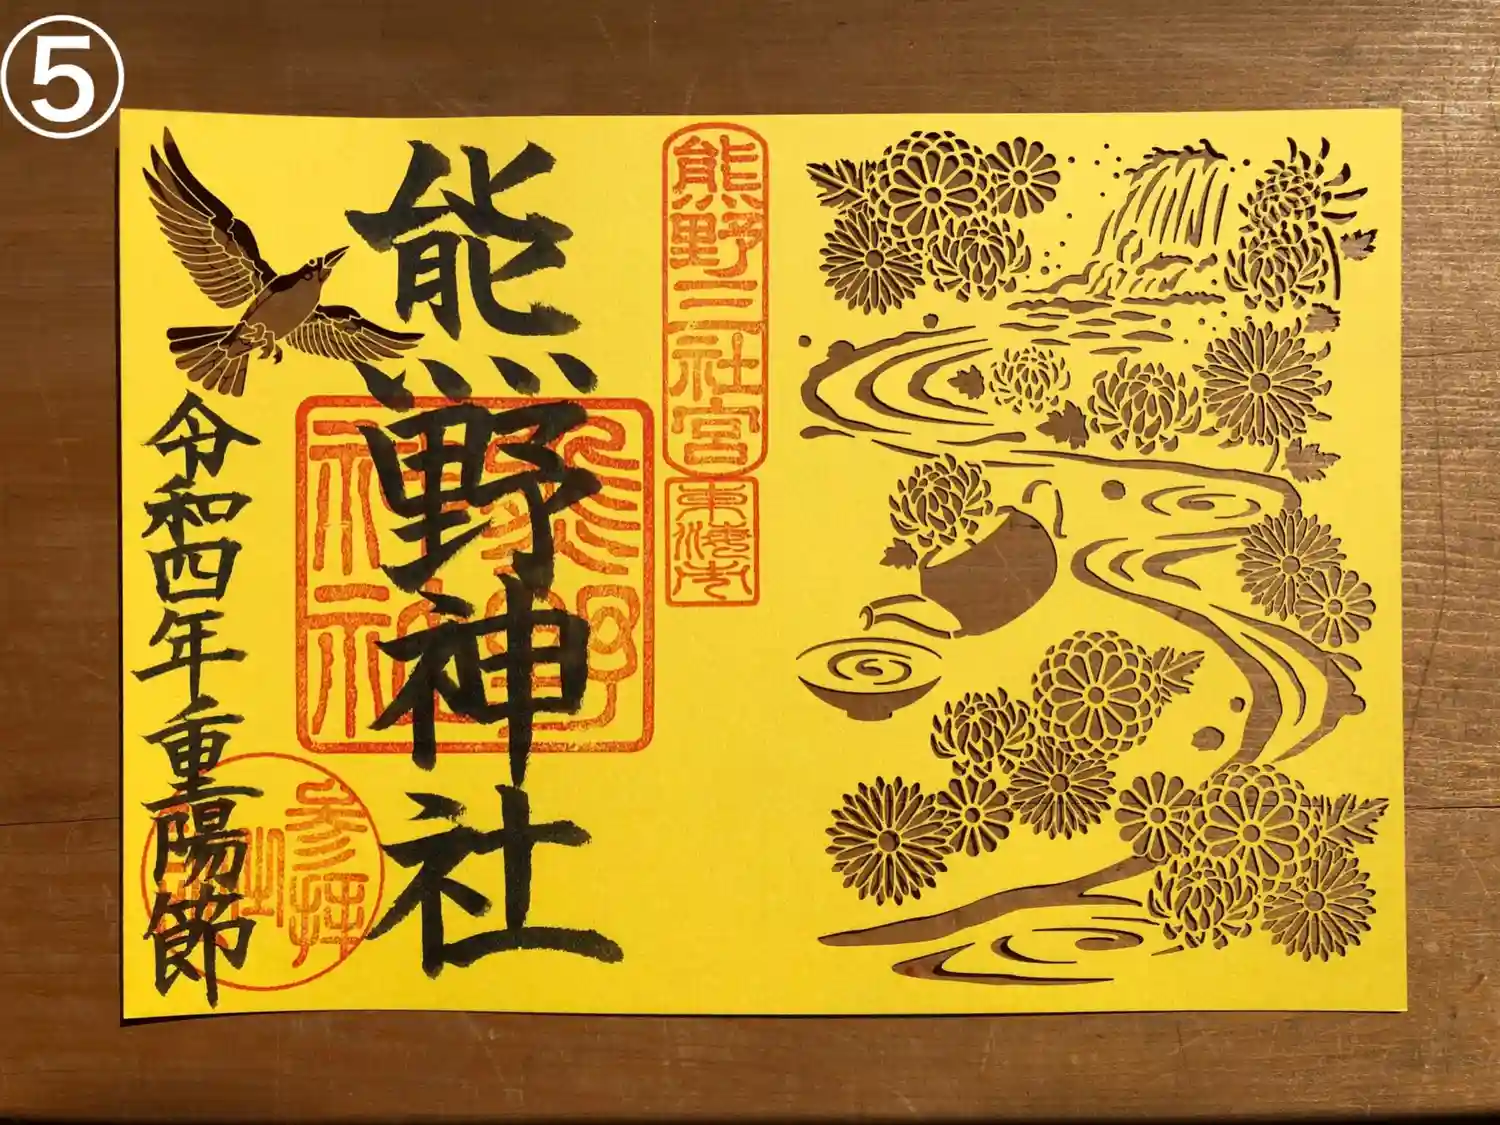 ⑤
熊野三社宮
東海市
熊野神社
熊野
神社
令和四年重陽節
参拝